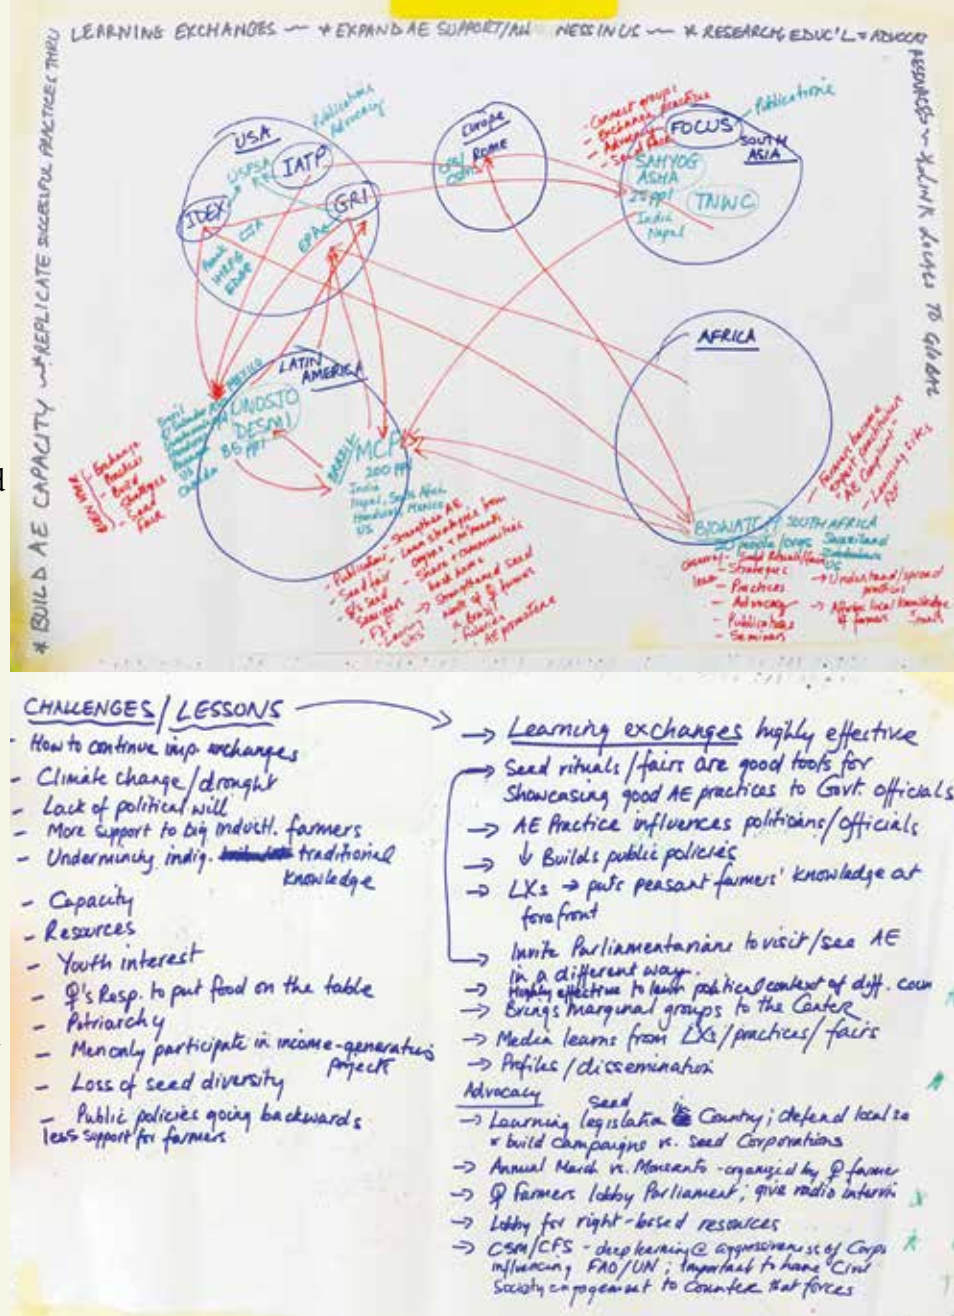 LEARNING EXCHANGES ~ * EXPAND AE SUPPORT/AW NESS IN US ~ * RESEARCH, EDUC'L + ADVOC
RESOURCES ~ * LINK LOCALS TO GLOBAL
* BUILD AE CAPACITY ~ * REPLICATE SUCCESSFUL PRACTICES THRU
USA
Publications
Advocacy
USFSA
IATP
IDEX
GRI
CJA
EPA
Europe
ROME
- Connect groups
- Exchange practice
- Advocacy
- Seed fair
FOCUS
Publications
SOUTH
ASIA
SAHYOG
ASHA
25 ppl
TNWC
India
Nepal
AFRICA
LATIN
AMERICA
MEXICO
UNOSJO
DESMI
85 ppl
Brazil
US
- Exchange
- Practices
- Build
- Challenges
- Seed
Fair
BRAZIL
MCP
200 ppl
India
Nepal, South Africa
Honduras, Mexico
US
- Publication
- Seed fair
- ♀'s seed
- Seminars
- F2F
- Learning
visits
- Strengthen AE
- Learn strategies from
orgns + mvmnts
- Share w communities
back home
→ Strengthened seed
work of ♀ farmers
in Brazil
- Policies
- AE promotion
- Farmers become
expert practitioners
"AE Campaign"
- Learning sites
for
BIOWATCH SOUTH AFRICA
20 people/orgs Swaziland
Zimbabwe
US
- Seed Rituals/fairs
learn - Strategies
- Practices
- Advocacy
- Publications
- Seminars
→ Understand/spread
practices
→ Affirm local knowledge
of farmers
CHALLENGES/LESSONS
- How to continue imp. exchanges
- Climate change/drought
- Lack of political will
- More support to big industl. farmers
- Undermining indig. traditional
knowledge
- Capacity
- Resources
- Youth interest
- ♀'s Resp. to put food on the table
- Patriarchy
- Men only participate in income-generating
projects
- Loss of seed diversity
- Public policies going backwards
less support for farmers
→ Learning exchanges highly effective
→ Seed rituals/fairs are good tools for
Showcasing good AE practices to Govt. officials
→ AE Practice influences politicians/officials
→ ↓ Builds public policies
→ LXs → puts peasant farmers' knowledge at
forefront
→ Invite Parliamentarians to visit/see AE
in a different way.
→ Highly effective to learn political context of diff. coun
→ Brings marginal groups to the Center
→ Media learns from LXs/practices/fairs
→ Profiles/dissemination
Advocacy
→ Learning seed legislation in Country; defend local se
+ build campaigns vs. seed Corporations
→ Annual March vs. Monsanto - organized by ♀ farmer
→ ♀ Farmers lobby Parliament; give radio intervi
→ Lobby for right-based resources
→ CSM/CFS - deep learning @ aggressiveness of Corps
influencing FAO/UN; important to have Civil
Society engagement to counter that forces